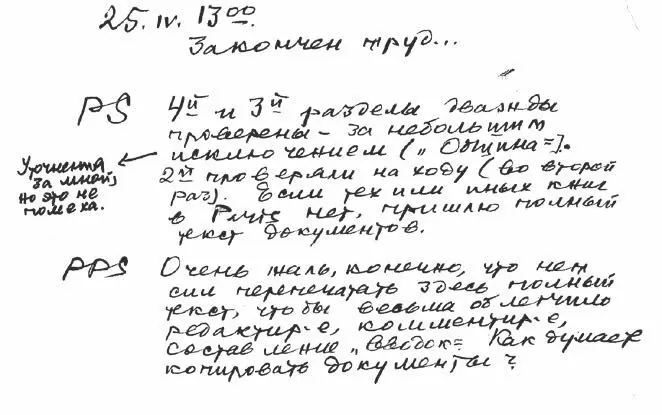 25.IV. 13 00.
Закончен труд...
PS 4й и 3й разделы дважды
проверены – за небольшим
исключением („Община=).
2й проверяли на ходу (во второй
раз). Если тех или иных книг
в нет, пришлю полный
текст документов.
Уточнения
за мной,
но это не
помеха.
PPS Очень жаль, конечно, что нет
сил перепечатать здесь полный
текст, что бы весьма облегчило
редактир-е, комментир-е,
составление „сводок= Как думаете
копировать документы?